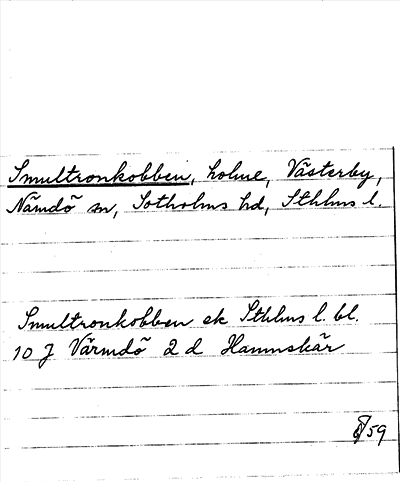 Smultronkobben, holme, Västerby,
Nämdö sn, Sotholms hd, Sthlms l.
Smultronkobben ek Sthlms l. bl.
10 J Värmdö 2 d Hammskär
59